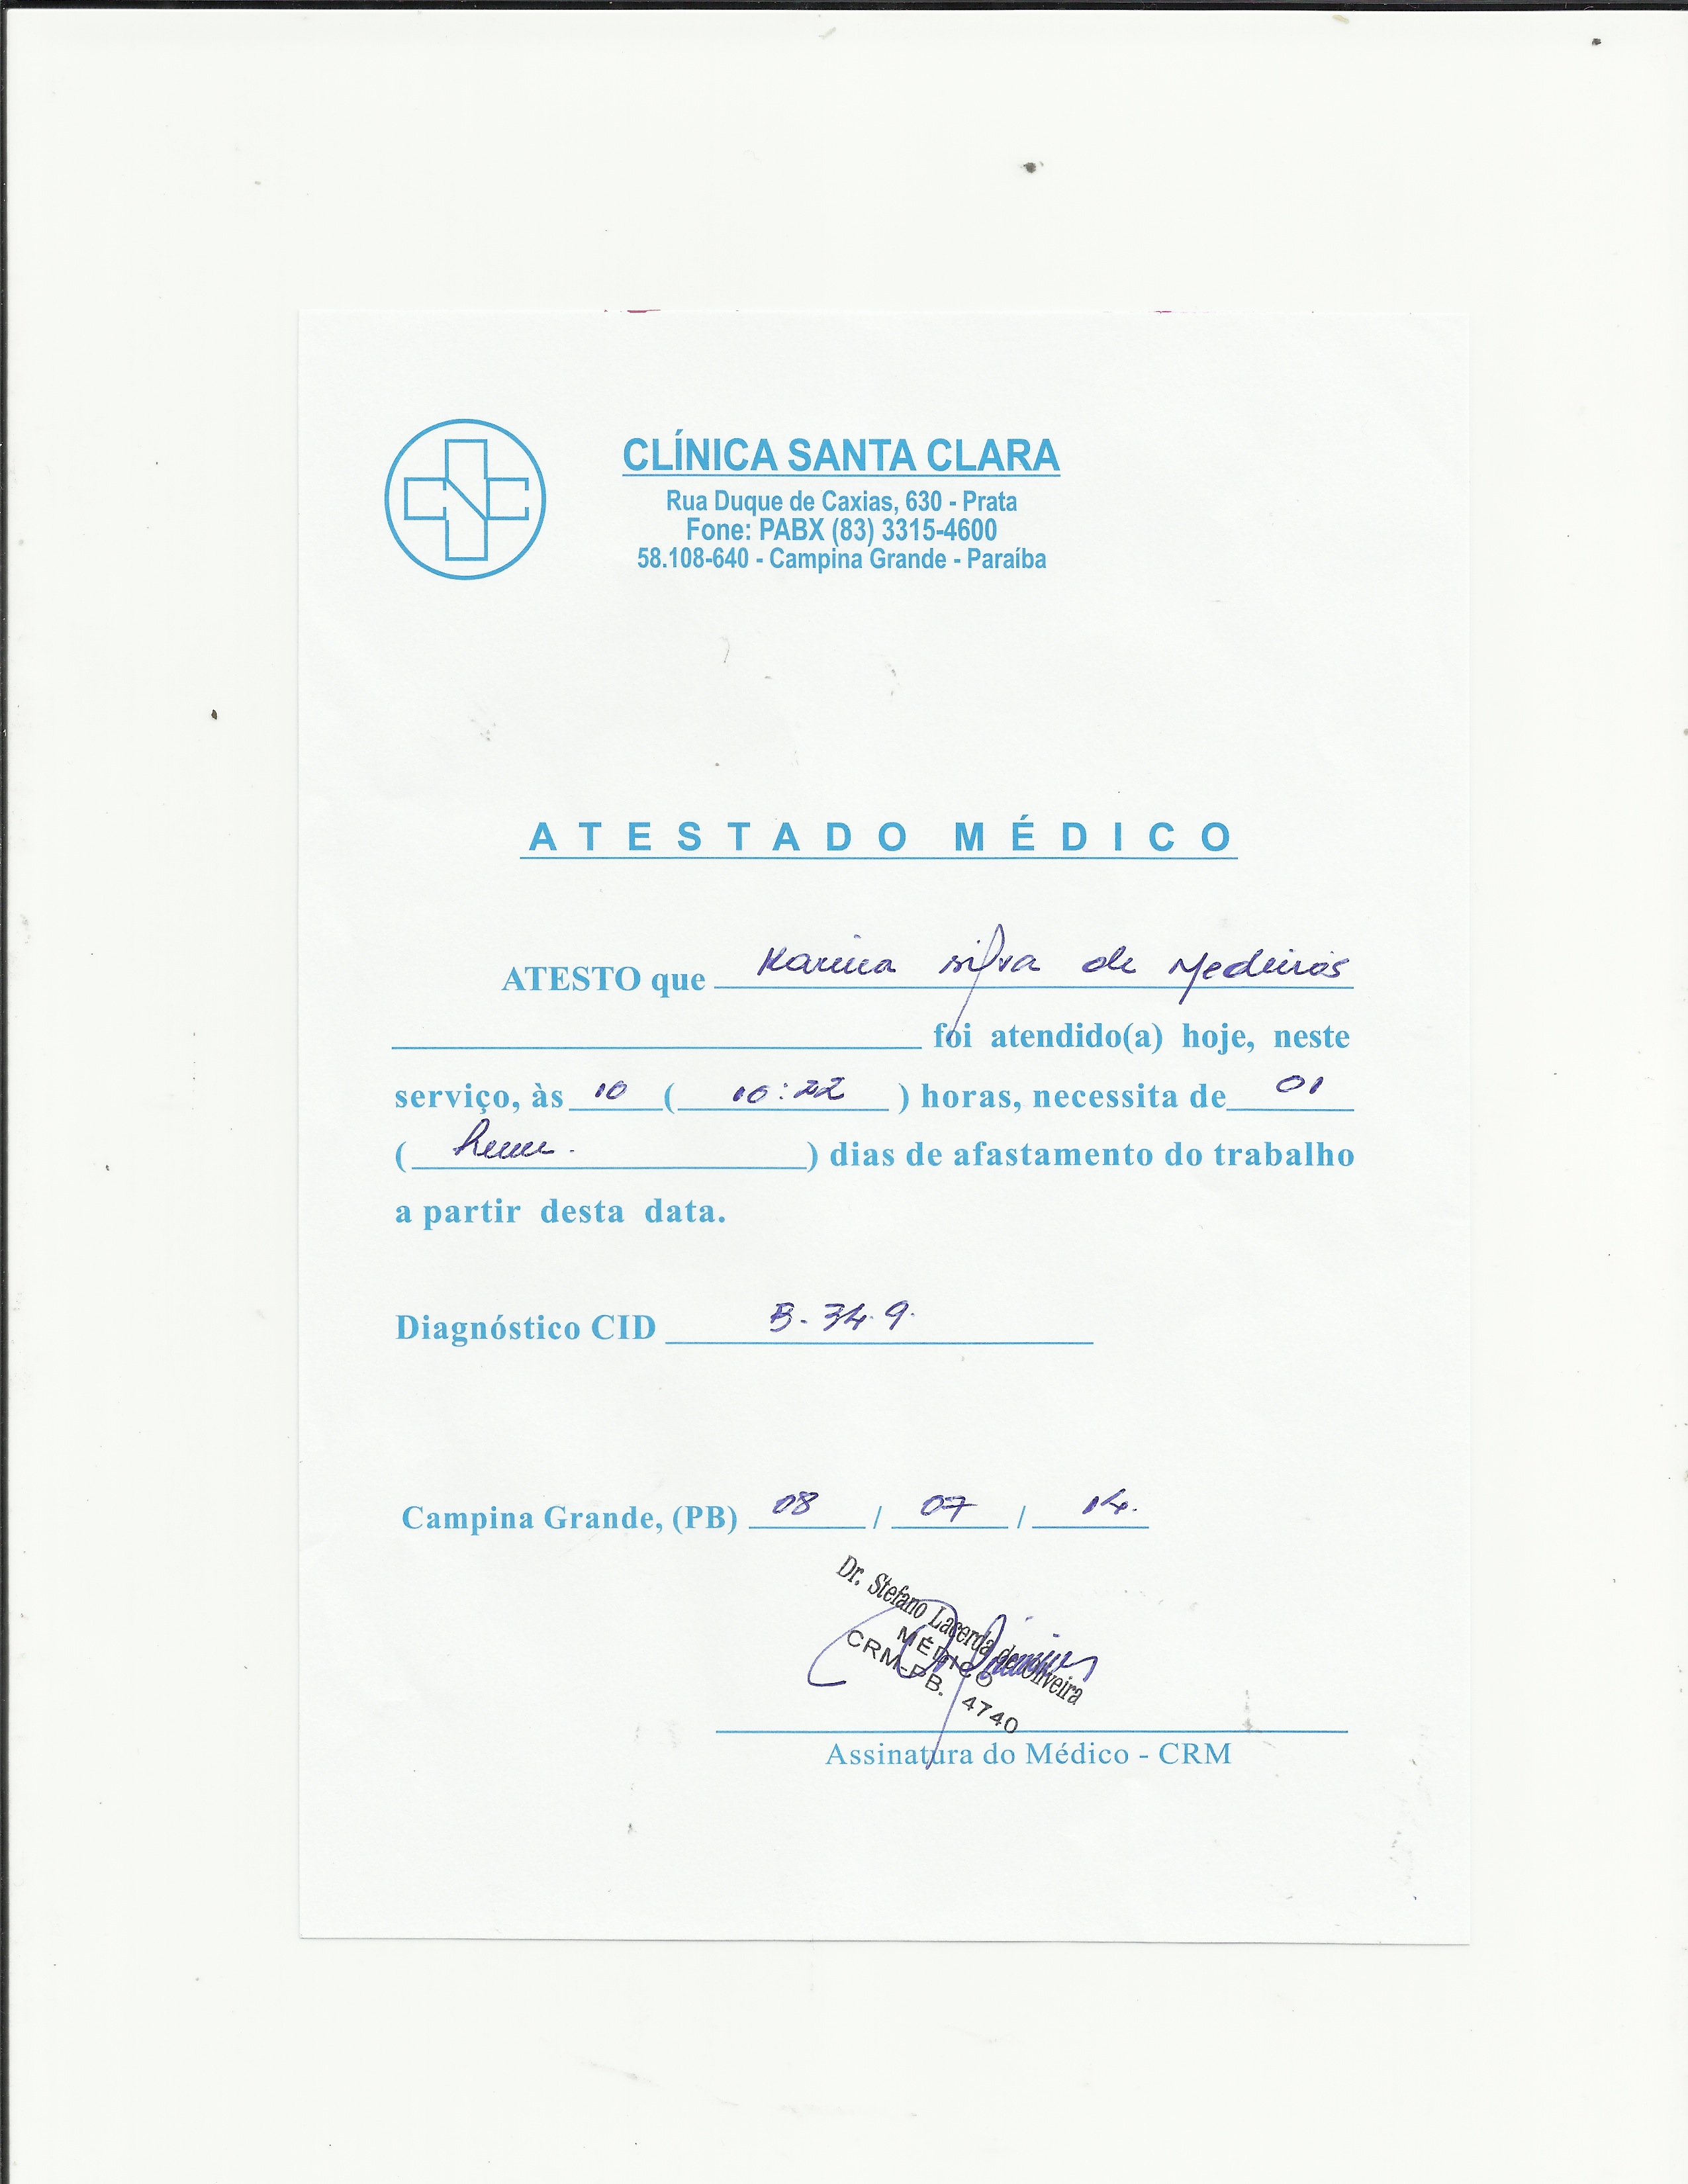 CLÍNICA SANTA CLARA
Rua Duque de Caxias, 630 - Prata
Fone: PABX (83) 3315-4600
58.108-640 - Campina Grande - Paraíba
ATESTADO MÉDICO
ATESTO que Karina Silva de Medeiros
foi atendido(a) hoje, neste
serviço, às 10 ( 10:22 ) horas, necessita de 01
( hum. ) dias de afastamento do trabalho
a partir desta data.
Diagnóstico CID B.34.9.
Campina Grande, (PB) 08 / 07 / 14.
Dr. Stefano Lacerda de Oliveira
MÉDICO
CRM-PB. 4740
Assinatura do Médico - CRM